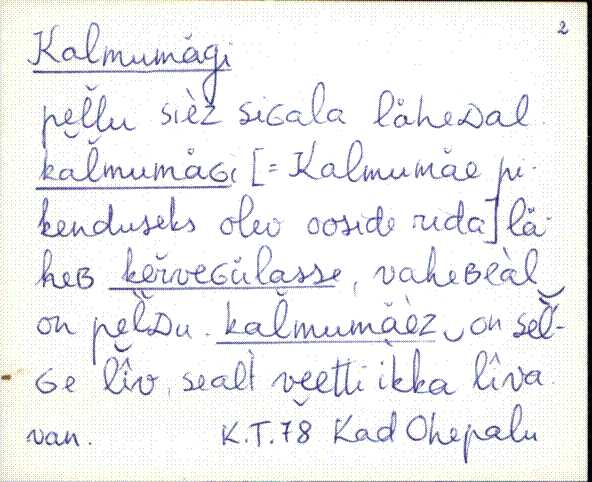 2
Kalmumägi
pel̆l̆u sièz siGala låheDal
kal̆mumäGi [= Kalmumäe pi-
kenduseks olev ooside rida] lä-
heB kĕrveGülasse, vaheBèàl
on pĕl̆Du. kal̆mumäèz on sel̆-
Ge lîv, sealt vĕetti ìkka lîva
van. K.T.78 Kad Ohepalu